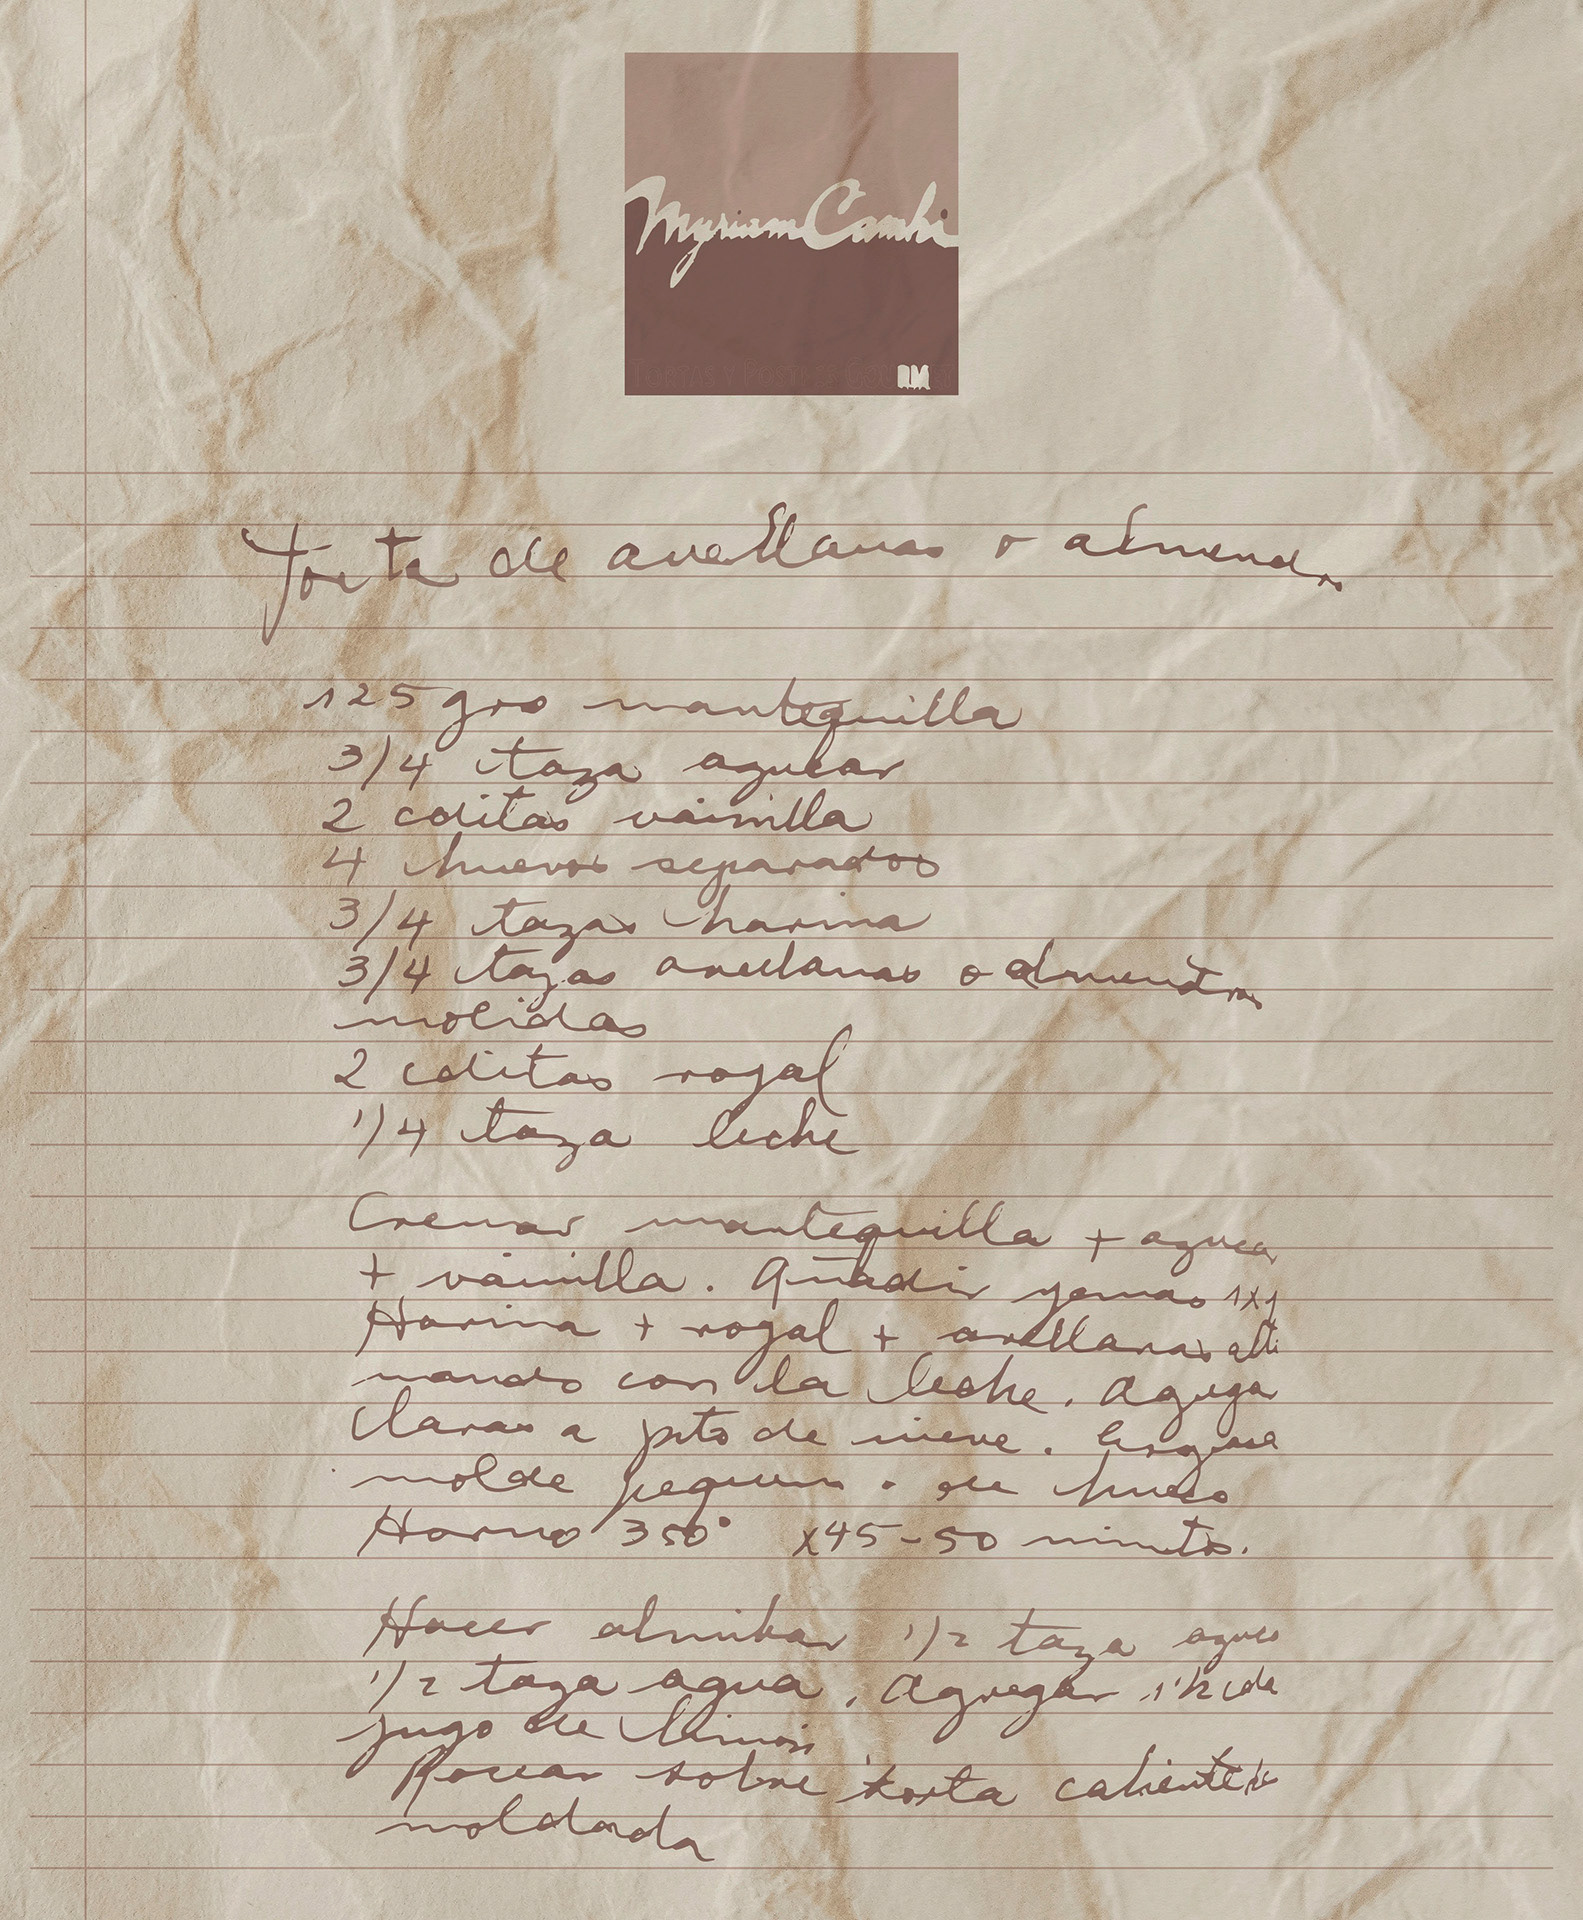 Myriam Camhi
RM
Torta de avellanas o almendras
125 grs mantequilla
3/4 taza azucar
2 cditas vainilla
4 huevos separados
3/4 tazas harina
3/4 tazas avellanas o almendras
molidas
2 cditas royal
1/4 taza leche
Cremar mantequilla + azucar
+ vainilla. Añadir yemas 1x1
Harina + royal + avellanas alter
nando con la leche. Agregar
claras a pto de nieve.
molde pequeño. de hueco
Horno 350° x45-50 minutos.
Hacer almibar 1/2 taza azuca
1/2 taza agua. Agregar 1 1/2 cda
jugo de limón
Rociar sobre torta caliente
moldada